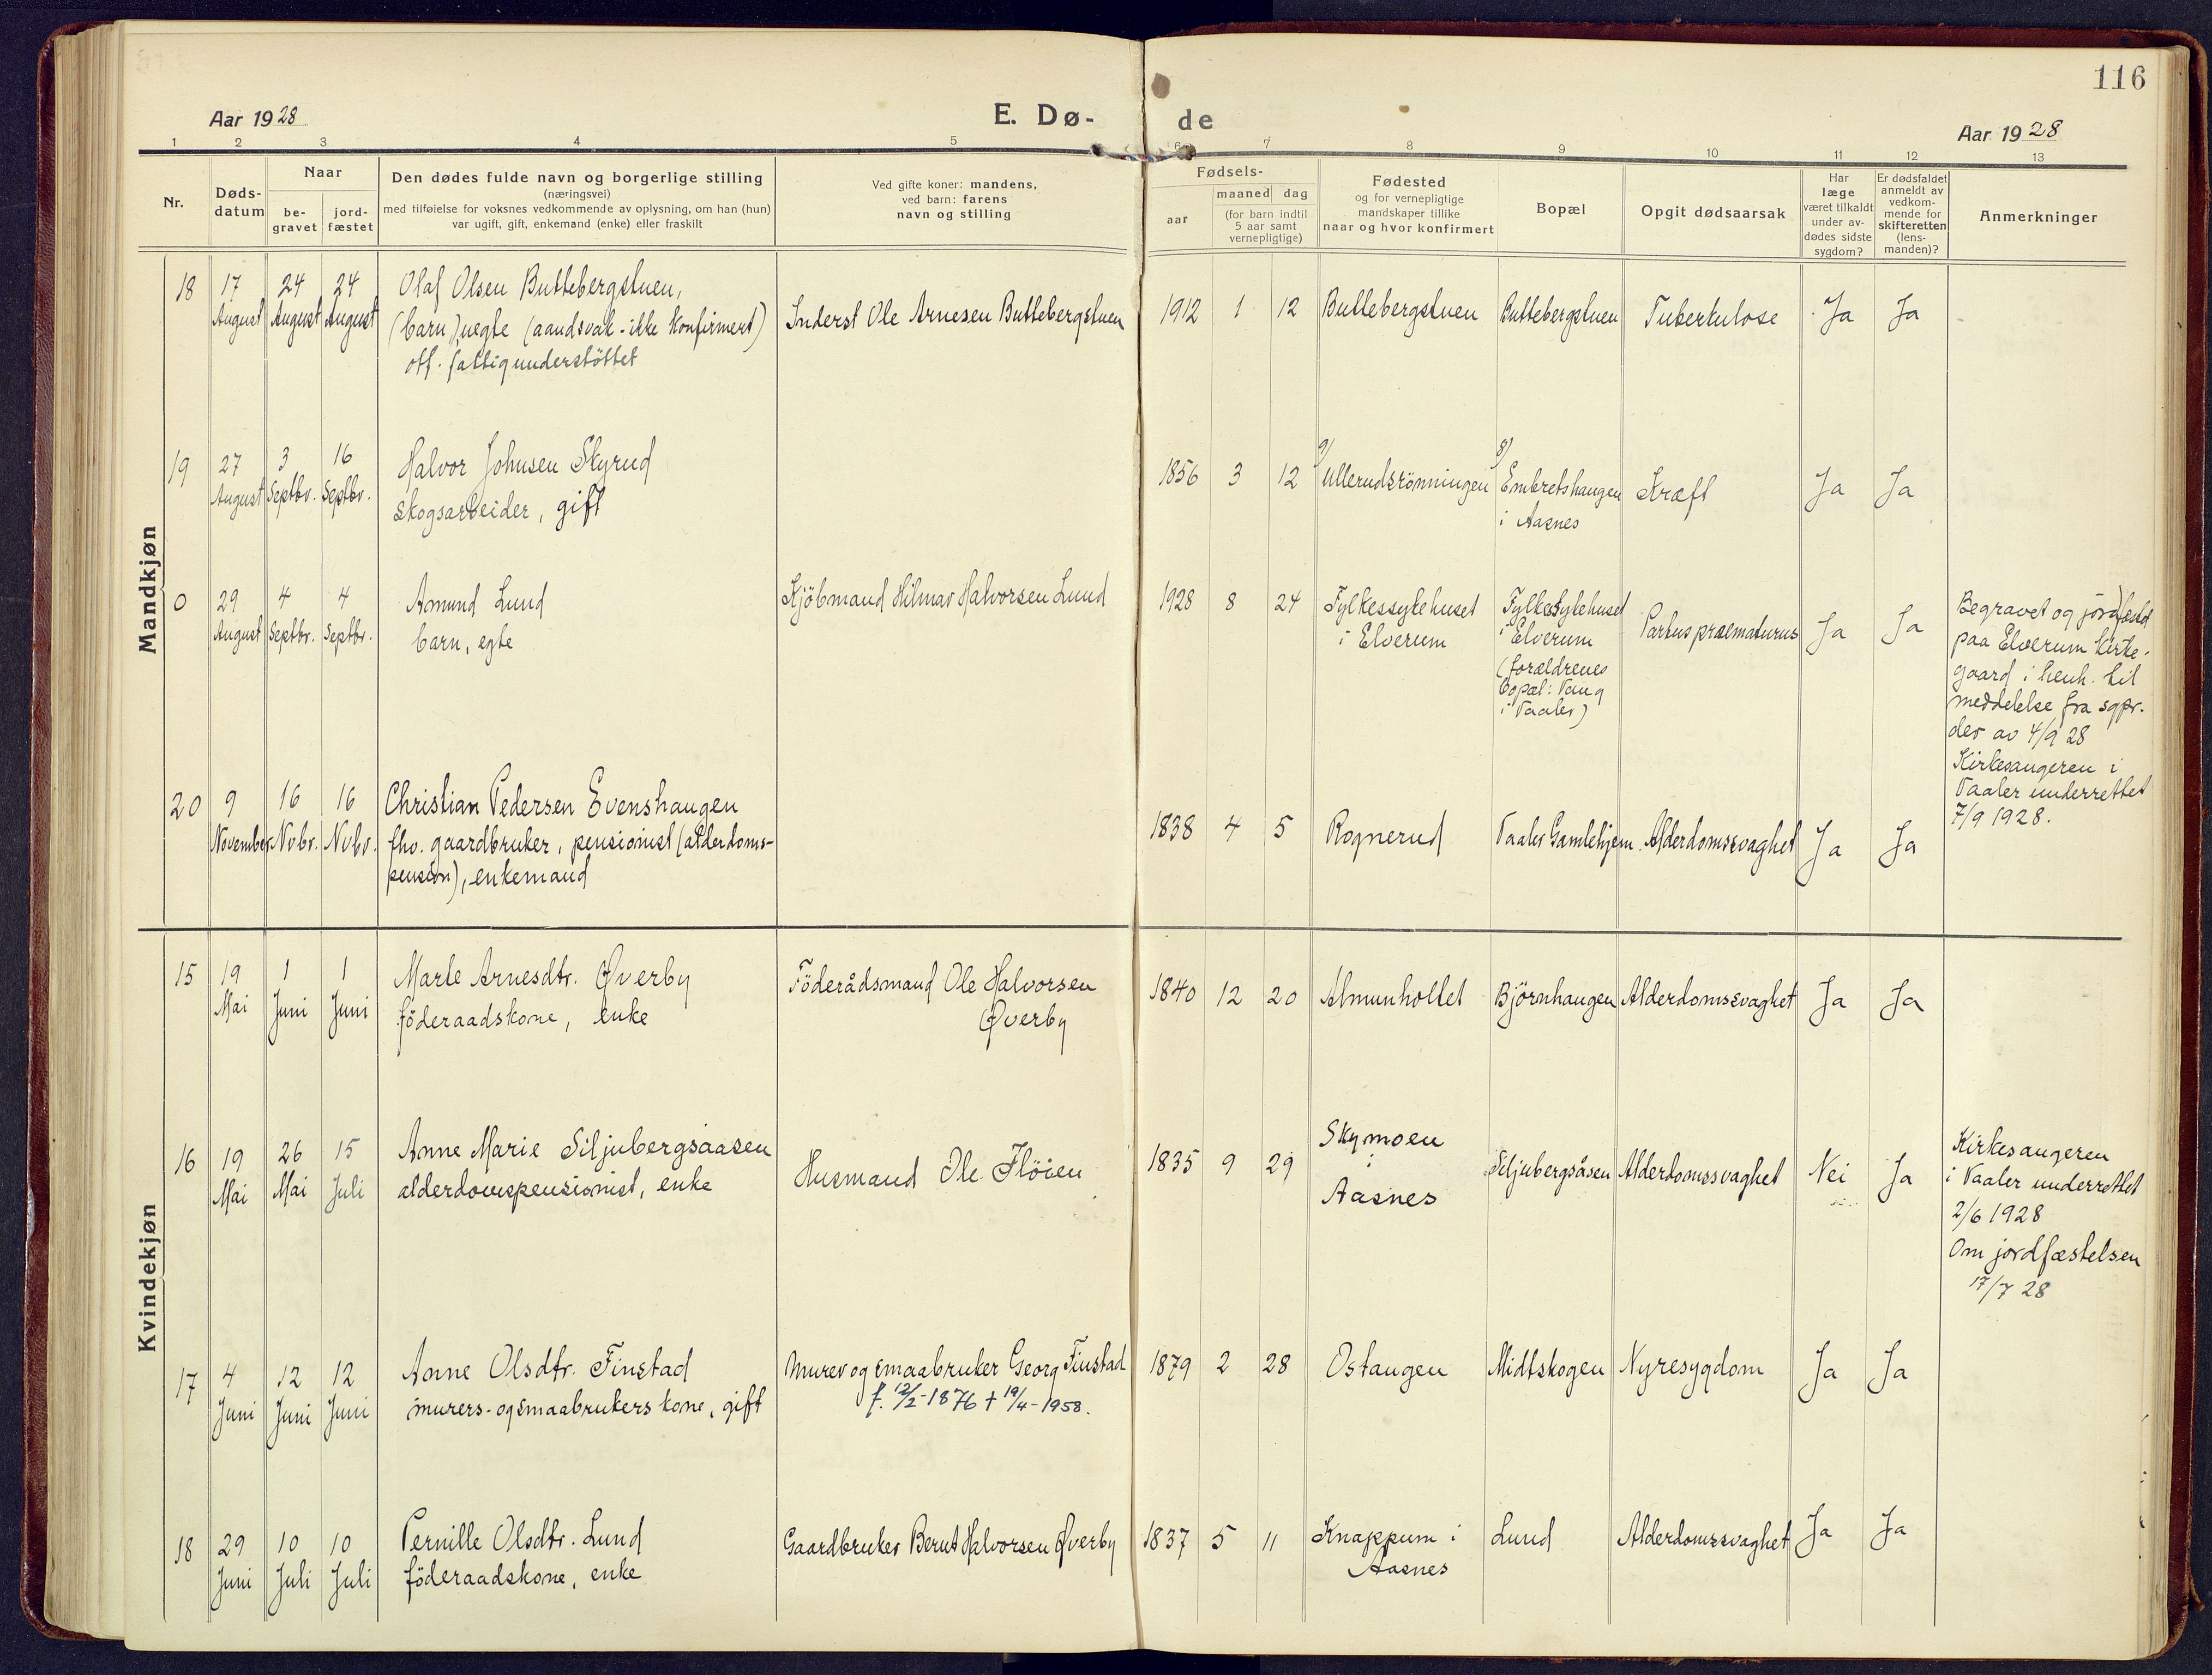 116
Aar 1928
E. Dø-
de
Aar 1928
1 2 3 4 5 6 7 8 9 10 11 12 13
Nr.
Døds-
datum
Naar
be-
gravet
jord-
fæstet
Den dødes fulde navn og borgerlige stilling
(næringsvei)
med tilføielse for voksnes vedkommende av oplysning, om han (hun)
var ugift, gift, enkemand (enke) eller fraskilt
Ved gifte koner: mandens,
ved barn: farens
navn og stilling
Fødsels-
aar
maaned dag
(for barn indtil
5 aar samt
vernepligtige)
Fødested
og for vernepligtige
mandskaper tillike
naar og hvor konfirmert
Bopæl
Opgit dødsaarsak
Har
læge
været tilkaldt
under av-
dødes sidste
sygdom?
Er dødsfaldet
anmeldt av
vedkom-
mende for
skifteretten
(lens-
manden)?
Anmerkninger
Mandkjøn
18
17
August
24
August
24
August
Olaf Olsen Buttebergstuen,
(barn), uegte (aandsvak - ikke konfirmert)
off. fattigunderstöttet
Inderst Ole Arnesen Buttebergstuen
1912 1 12
Buttebergstuen
Buttebergstuen
Tuberkulose
Ja
Ja
19
27
August
3
Septbr.
16
Septbr.
Halvor Johnsen Skyrud
skogsarbeider, gift
1856 3 12
9)
Ullerudsrönningen
8)
Embretshaugen
i Aasnes
Kræft
Ja
Ja
0
29
August
4
Septbr.
4
Septbr.
Amund Lund
barn, egte
Kjöbmand Hilmar Halvorsen Lund
1928 8 24
Fylkessykehuset
i Elverum
Fylkessykehuset
i Elverum
(forældrenes
bopæl: Vang
i Vaaler)
Partus præmaturus
Ja
Ja
Begravet og jordfæstd
paa Elverum kirke-
gaard i henh. til
meddelelse fra sgpr.
der av 4/9 28
Kirkesangeren i
Vaaler underrettet
7/9 1928.
20
9
November
16
Novbr.
16
Novbr.
Christian Pedersen Evenshaugen
fhv. gaardbruker, pensionist (alderdoms-
pension), enkemand
1838 4 5
Rognerud
Vaaler Gamlehjem
Alderdomssvaghet
Ja
Ja
Kvindekjøn
15
19
Mai
1
Juni
1
Juni
Marte Arnesdtr. Øverby
föderaadskone, enke
Föderådsmand Ole Halvorsen
Øverby
1840 12 20
Almunholtet
Björnhaugen
Alderdomssvaghet
Ja
Ja
16
19
Mai
26
Mai
15
Juli
Anne Marie Siljubergsaasen
alderdomspensionist, enke
Husmand Ole Flöien
1835 9 29
Skymoen
i
Aasnes
Siljubergsåsen
Alderdomssvaghet
Nei
Ja
Kirkesangeren
i Vaaler underrettet
2/6 1928
Om jordfæstelsen
17/7 28
17
4
Juni
12
Juni
12
Juni
Anne Olsdtr. Finstad
murers- og smaabrukers kone, gift
Murer og smaabruker Georg Finstad
f. 12/2-1876 † 19/4-1958.
1879 2 28
Ostangen
Midtskogen
Nyresygdom
Ja
Ja
18
29
Juni
10
Juli
10
Juli
Pernille Olsdtr. Lund
föderaadskone, enke
Gaardbruker Bernt Halvorsen Øverby
1837 5 11
Knappum i
Aasnes
Lund
Alderdomssvaghet
Ja
Ja